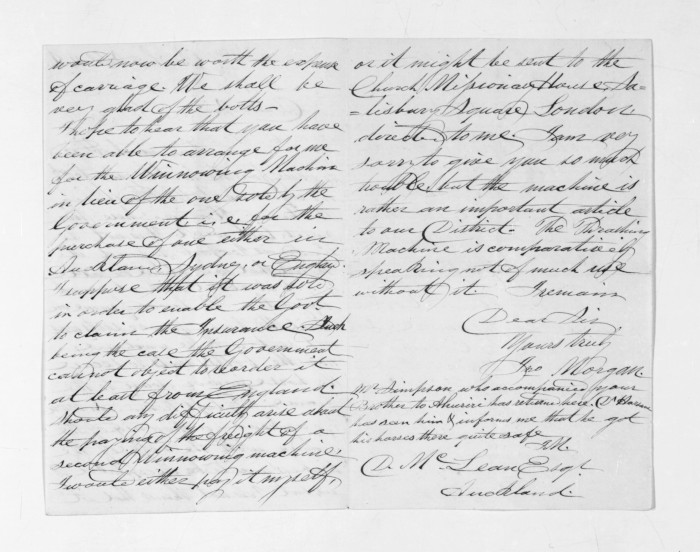 would now be worth the expense
of carriage. We shall be
very glad of the bolts -
I hope to hear that you have
been able to arrange for me
for the Winnowing Machine
in lieu of the one sold by the
Government i.e. for the
purchase of one either in
Auckland, Sydney, or England.
I suppose that it was sold
in order to enable the Govt.
to claim the Insurance. Such
being the case the Government
cannot object to order it
at least from England.
Should any difficulty arise about
the payment of the freight of a
second Winnowing machine,
I would either pay it myself,
or it might be sent to the
Church Missionary House Sa=
=lisbury Square London
directed to me. I am very
sorry to give you so much
trouble, but the machine is
rather an important article
to our District. The Thrashing
Machine is comparatively
speaking not of much use
without it I remain
Dear Sir,
Yours truly
Jno Morgan.
Mr Simpson, who accompanied your
Brother to Ahuriri has returned here. Dr
has seen him & informs me that he got
his horses there quite safe
J.M.
D. McLean Esqr.
Auckland.